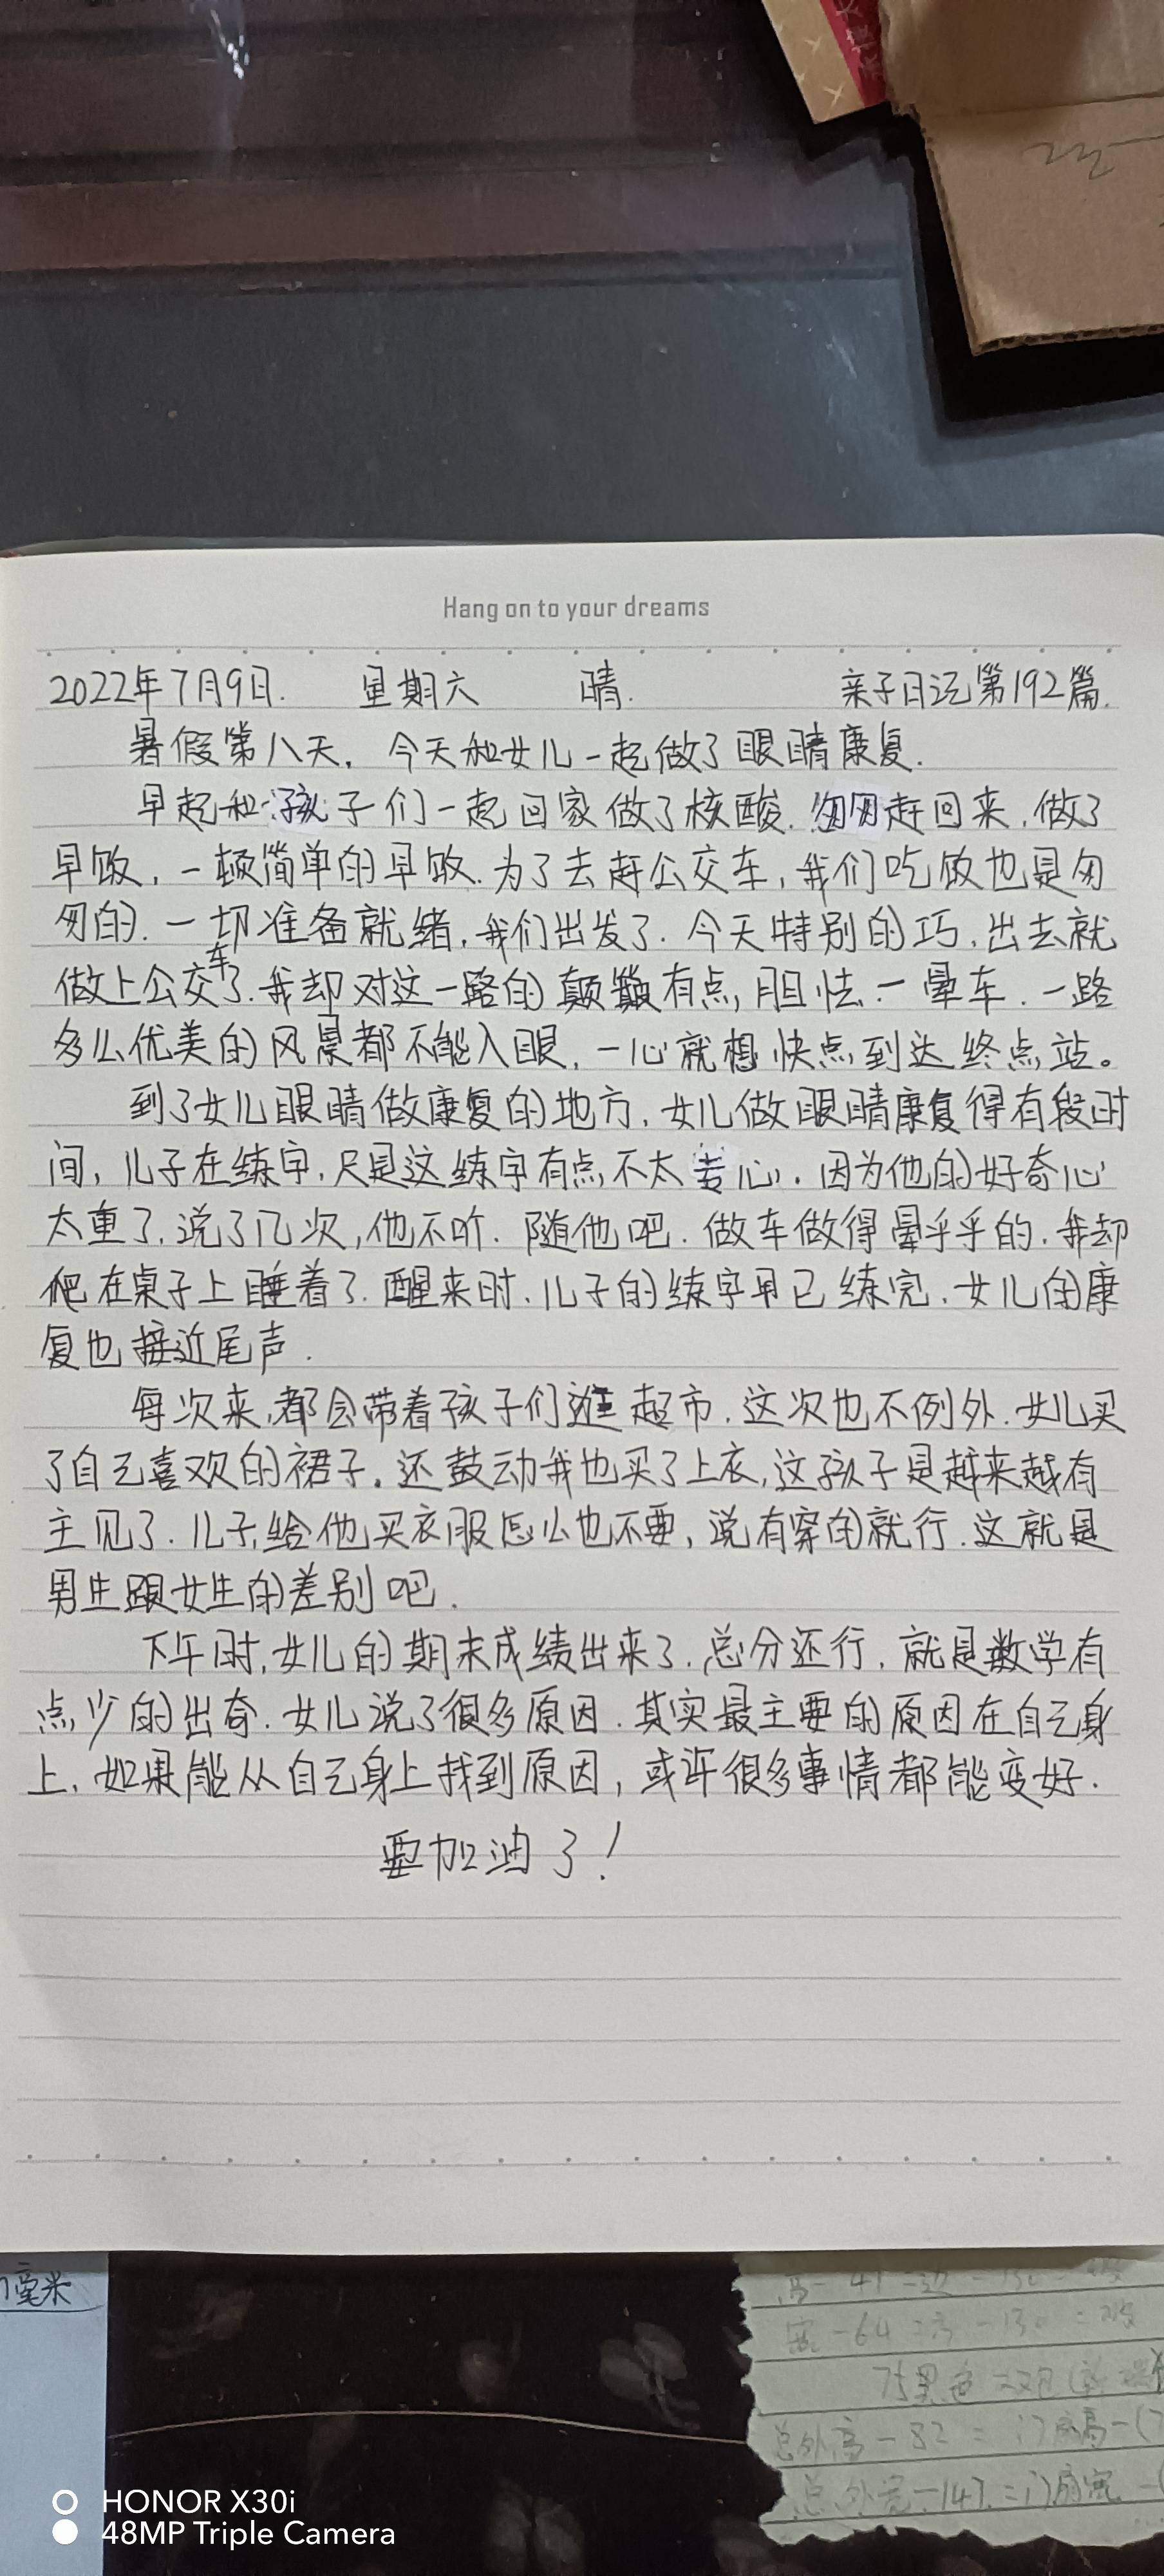 Hang on to your dreams
2022年7月9日. 星期六 晴. 亲子日记第192篇.
暑假第八天，今天和女儿一起做了眼睛康复.
早起和孩子们一起回家做了核酸.匆匆赶回来,做了
早饭，一顿简单的早饭.为了去赶公交车,我们吃饭也是匆
匆的.一切准备就绪,我们出发了.今天特别的巧,出去就
做上公交车了.我却对这一路的颠簸有点,胆怯一晕车.一路
多么优美的风景都不能入眼,一心就想快点到达终点站。
到了女儿眼睛做康复的地方,女儿做眼睛康复得有段时
间,儿子在练字,只是这练字有点不太专心.因为他的好奇心
太重了,说了几次,他不听.随他吧.做车做得晕乎乎的.我却
爬在桌子上睡着了.醒来时,儿子的练字早已练完.女儿的康
复也接近尾声.
每次来,都会带着孩子们逛超市.这次也不例外.女儿买
了自己喜欢的裙子。还鼓动我也买了上衣,这孩子是越来越有
主见了.儿子,给他买衣服怎么也不要,说有穿的就行.这就是
男生跟女生的差别吧.
下午时,女儿的期末成绩出来了.总分还行,就是数学有
点少的出奇.女儿说了很多原因.其实最主要的原因在自己身
上,如果能从自己身上找到原因,或许很多事情都能变好.
要加油了!
毫米
总外高-82=门扇高-
总外宽-147=门扇宽-
HONOR X30i
48MP Triple Camera